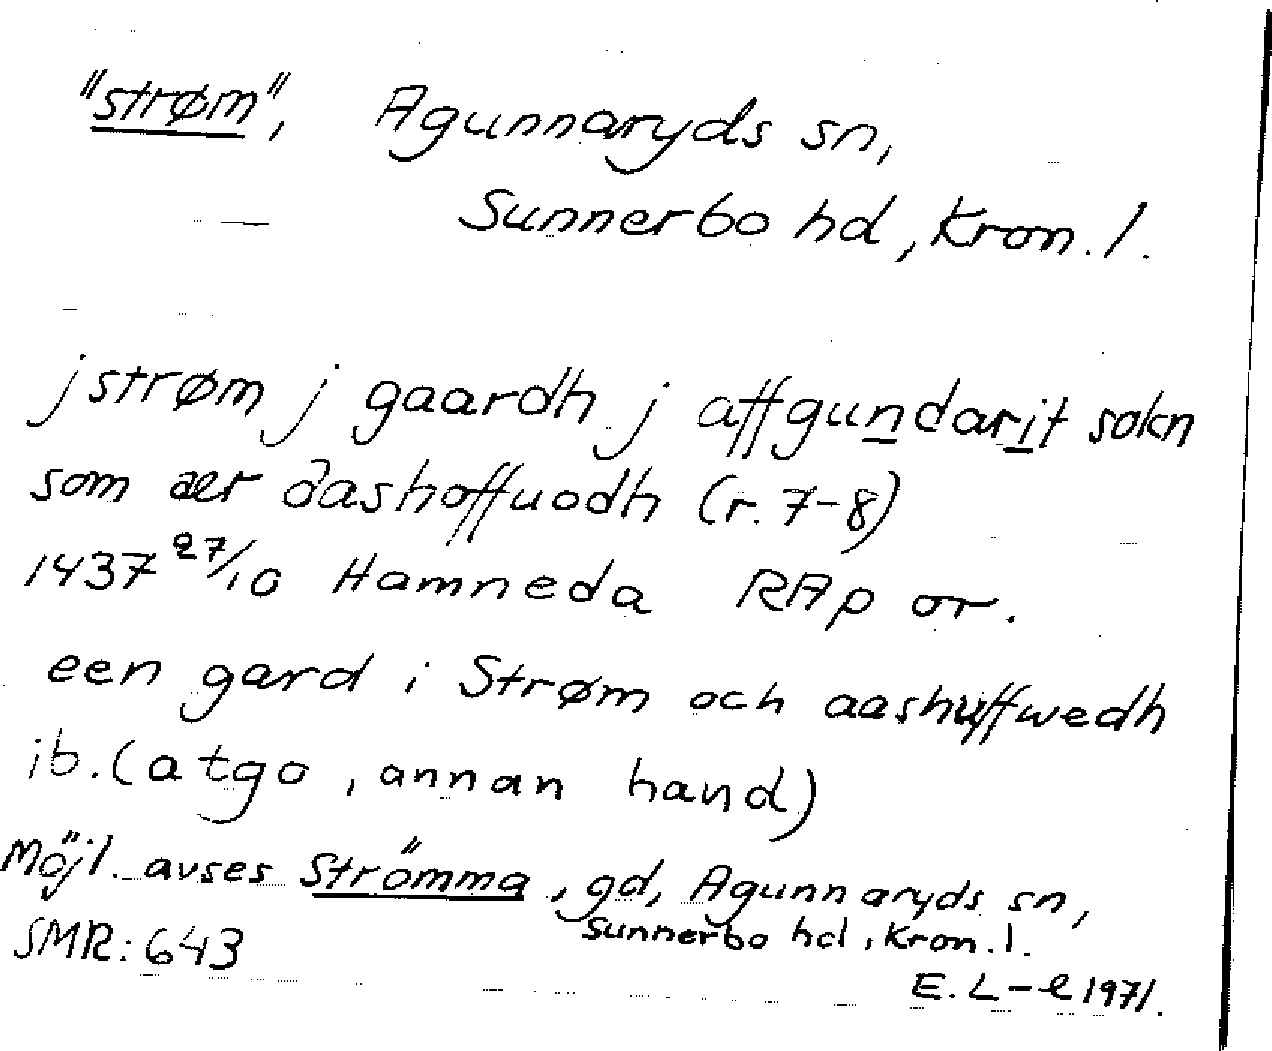 "strøm", Agunnaryds sn,
Sunnerbo hd, Kron. l.
j strøm j gaardh j affgundarit sokn
som aer aashoffuodh (r. 7-8)
1437 27/10 Hamneda RAp or.
een gard i Strøm och aashuffwedh
ib. (atgo, annan hand)
Möjl. avses Strömma, gd, Agunnaryds sn,
Sunnerbo hd, Kron. l.
SMR: 643
E. L-e 1971.